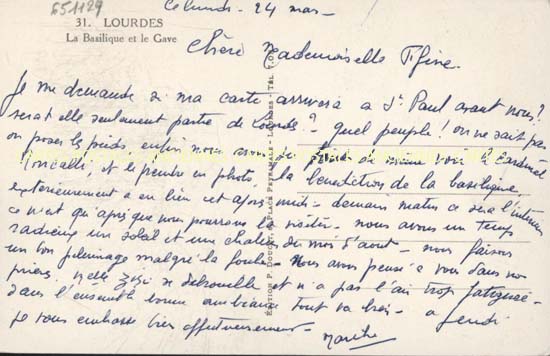 651129
31. LOURDES
La Basilique et le Gave
Ce lundi - 24 mars -
Chère Mademoiselle Fifine.
Je me demande si ma carte arrivera à St Paul avant nous?
sera t elle seulement partie de Lourdes? - quel peuple! on ne sait pas
où poser les pieds. enfin nous avons pu quand même voir le Cardinal
Roncalli, et le prendre en photo, la bénédiction de la basilique,
extérieurement a eu lieu cet après midi - demain matin ce sera l'intérieur
ce n'est qu'après que nous pourrons la visiter - nous avons un temps
radieux un soleil et une chaleur du mois d'août - nous faisons
un bon pèlerinage malgré la foule - Nous avons pensé à vous dans nos
prières, se débrouille et n'a pas l'air trop fatiguée -
dans l'ensemble bonne ambiance tout va bien - à jeudi
je vous embrasse bien affectueusement -
ÉDITION P. DOUCET, PLACE PEYRAMALE - LOURDES - TÉL.